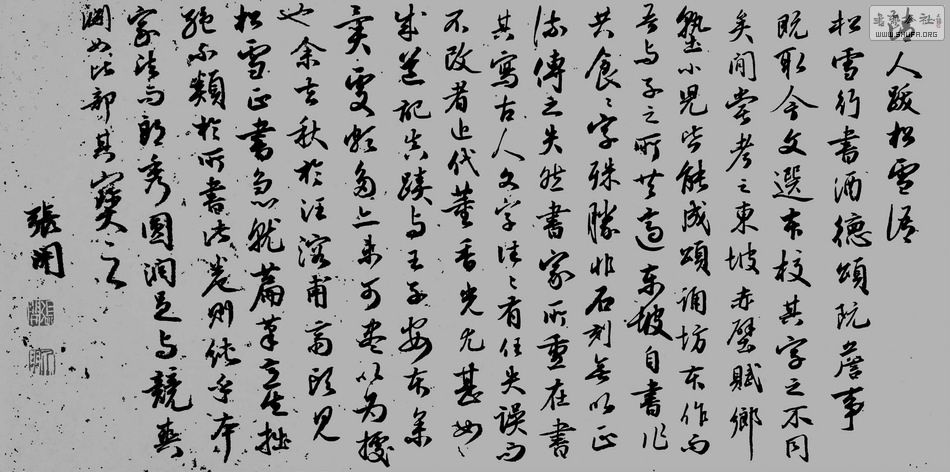 人跋松雪語
松雪行書酒德頌阮詹事
既取今文選本校其字之不同
矣間嘗考之東坡赤壁賦鄉
塾小兒皆能成頌誦坊本作而
吾與子之所共適東坡自書作
共食〻字殊勝非石刻無以正
流傳之失然書家所重在書
其寫古人文字往〻有任失誤而
不改者近代董香光尤甚如
成道記真蹟與王子安本集
異更數多亦未可盡以為據
也余去秋於汪溶甫齋頭見
松雪正書急就篇筆意生拙
絕不類於所書此卷則純乎本
家法而朗秀圓潤足與競爽
如比部其寶之
張開
WWW.SHUFA.ORG